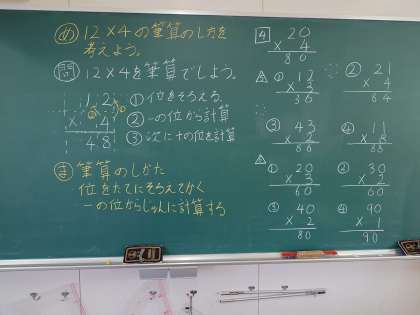 め 12×4の筆算のし方を
考えよう。
問 12×4を筆算でしよう。
12
× 4
48
①位をそろえる。
②一の位から計算
③次に十の位を計算
ま 筆算のしかた
位をたてにそろえてかく
一の位からじゅんに計算する
4 20
× 4
80
① 12
× 3
36
② 21
× 4
③ 43
× 2
86
④ 11
×
① 20
× 3
60
② 30
× 2
60
③ 40
× 2
80
④ 90
× 1
90